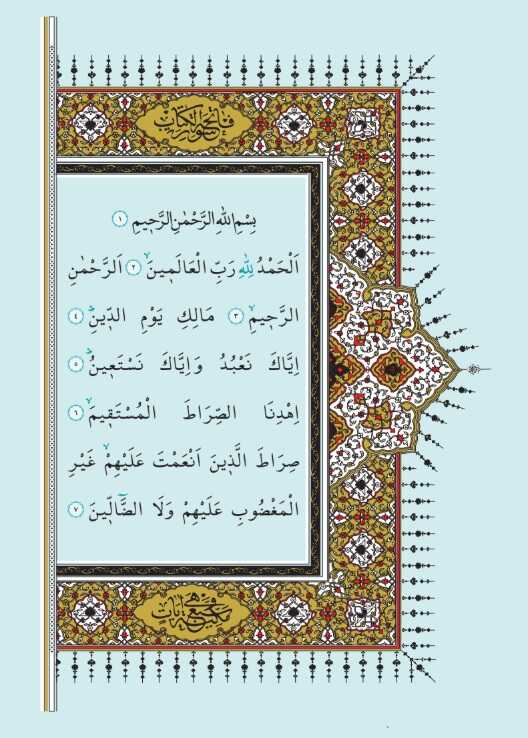 فاتحة الكتاب
بِسْمِ اللّٰهِ الرَّحْمٰنِ الرَّحٖيمِ ﴿١﴾
اَلْحَمْدُ لِلّٰهِ رَبِّ الْعَالَمٖينَۙ ﴿٢﴾ اَلرَّحْمٰنِ
الرَّحٖيمِۙ ﴿٣﴾ مَالِكِ يَوْمِ الدّٖينِؕ ﴿٤﴾
اِيَّاكَ نَعْبُدُ وَاِيَّاكَ نَسْتَعٖينُؕ ﴿٥﴾
اِهْدِنَا الصِّرَاطَ الْمُسْتَقٖيمَۙ ﴿٦﴾
صِرَاطَ الَّذٖينَ اَنْعَمْتَ عَلَيْهِمْۙ غَيْرِ
الْمَغْضُوبِ عَلَيْهِمْ وَلَا الضَّٓالّٖينَ ﴿٧﴾